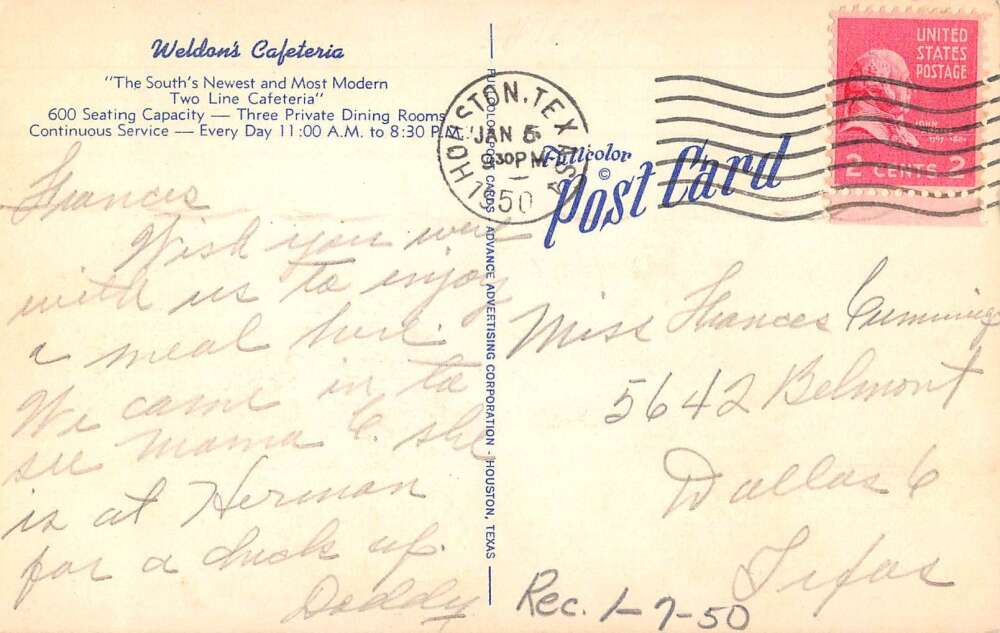 Weldon's Cafeteria
"The South's Newest and Most Modern
Two Line Cafeteria"
600 Seating Capacity — Three Private Dining Rooms
Continuous Service — Every Day 11:00 A.M. to 8:30 P.M.
Frances
Wish you were
with us to enjoy
a meal here.
We came in to
see Mama C. she
is at Herman
for a check up.
Daddy
PU COLOR POST CARDS ADVANCE ADVERTISING CORPORATION - HOUSTON, TEXAS
HOUSTON, TEXAS
JAN 5
30 PM
1950
Fullcolor
©
Post Card
UNITED
STATES
POSTAGE
JOHN
2 CENTS 2
Miss Frances Cumming
5642 Belmont
Dallas 6
Texas
Rec. 1-7-50